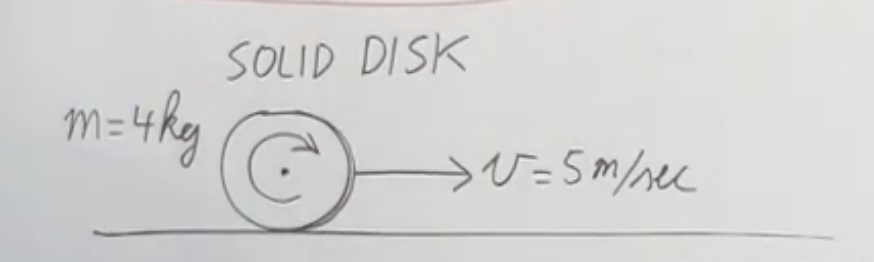 SOLID DISK
m=4kg
v=5m/sec